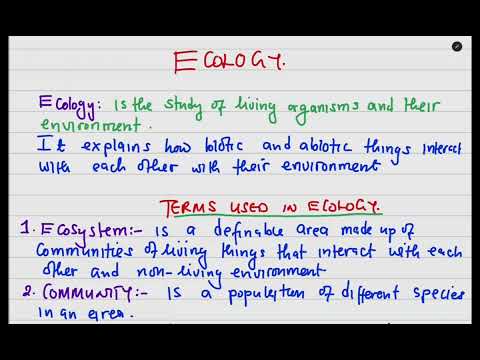 ECOLOGY.
Ecology: is the study of living organisms and their
environment.
It explains how biotic and abiotic things interact
with each other with their environment
TERMS USED IN ECOLOGY.
1. Ecosystem:- is a definable area made up of
Communities of living things that interact with each
other and non-living environment
2. COMMUNITY:- is a population of different species
in an area.